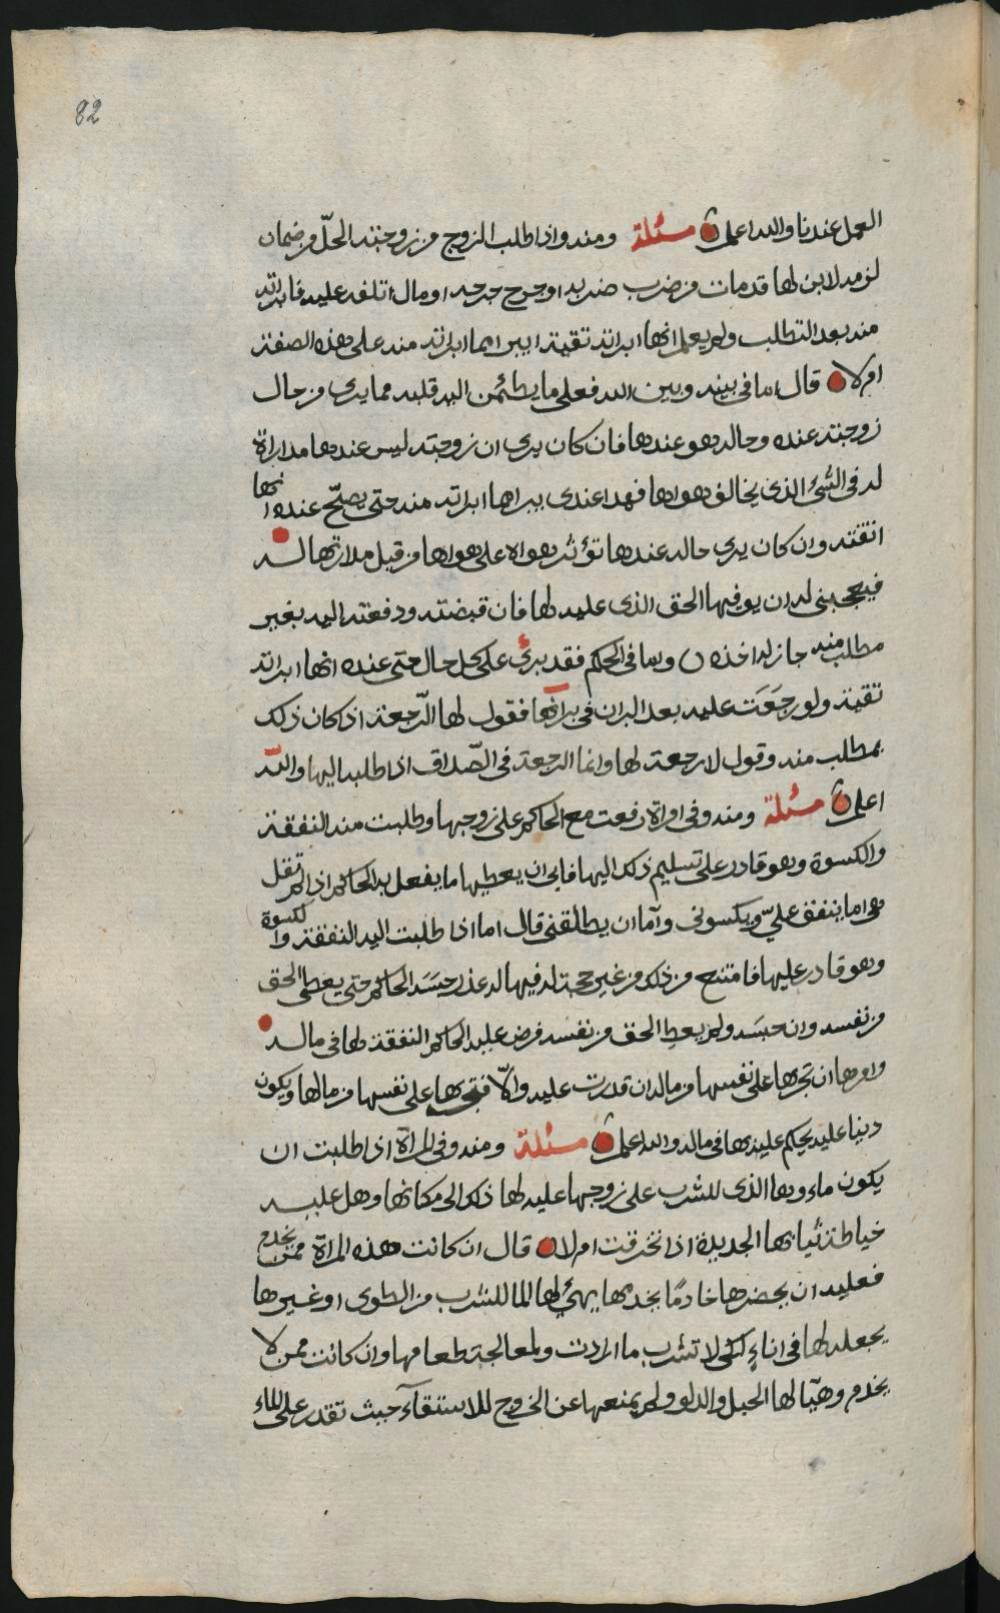 82
العمل عندنا والله اعلم مسئلة ومنه واذا طلب الزوج من زوجته الحلّ من ضمان
لزمه لابن لها قد مات من ضرب ضربه او جرح جرحه او مال اتلفه عليه فابراته
منه بعد التطلب ولم يعلم انها ابراته تقية ايبرا مما ابراته منه على هذه الصفة
ام لا قال اما في بينه وبين الله فعلى ما يطئمن اليه قلبه مما يرى من حال
زوجته عنده وحاله هو عندها فان كان يرى ان زوجته ليس عندها مداراة
له في الشئ الذى يخالف هواها فهذا عندى يبراها ابراته منه حتى يصحّ عنده انها
اتقته وان كان يرى حاله عندها تؤثر هواه على هواها من قبل مداراتها لـه
فيعجبنى له ان يوفيها الحق الذى عليه لها فان قبضته ودفعته اليه بغير
مطلب منه جاز له اخذه واما في الحكم فقد برئ على كل حال حتى عنده انها ابراته
تقية ولو رجعَت عليه بعد البران في برانها فقول لها الرّجعة اذ كان ذلك
بمطلب منه وقول لا رجعة لها وانما الرجعة في الصّداق اذا طلبه اليها والله
اعلم مسئلة ومنه وفي امراة رفعت مع الحاكم على زوجها وطلبت منه النفقة
والكسوة وهو قادر على تسليم ذلك اليها فابى ان يعطيها ما يفعل به الحاكم اذا لم تقل
هى اما ينفق عليّ ويكسونى وامّا ان يطالقنى قال اما اذا طلبت اليه النفقة والكسوة
وهو قادر عليها فامتنع من ذلك من غير حجة له فيها له عذر حبسَه الحاكم حتى يعطى الحق
من نفسه وان حبسَه ولم يعط الحق من نفسه فرض عليه الحاكم النفقة لها في مالـه
وامرها ان تجرها على نفسها من ماله ان قدرت عليه والاّ فتجرها على نفسها من مالها ويكون
دينا عليه يحكم عليه بها في ماله والله اعلم مسئلة ومنه وفي المراة اذا طلبت ان
يكون ماءوها الذى للشرب على زوجها عليه لها ذلك الى مكانها وهل عليـه
خياطة ثيابها الجديدة اذا تخرقت ام لا قال ان كانت هذه المراة ممن يخدم
فعليه ان يحضرها خادمًا يخدمها يهئ لها الما للشرب من الطوى او غيرها
يجعله لها في اناءٍ لكى لا تشرب ما ارادت ولمعالجة طعامها وان كانت ممن لا
يخدم وهيّا لها الحبل والدلو ولم يمنعها عن الخروج للاستقآء حيث تقدر على الماء